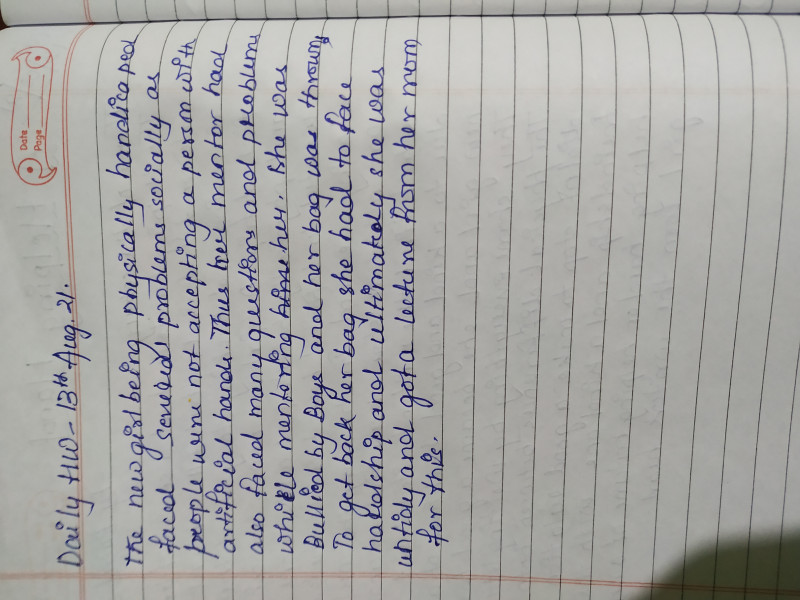 Date
Page
Daily HW - 13th Aug. 21.
The new girl being physically handicaped
faced several problems socially as
people were not accepting a person with
artificial hands. Thus her mentor had
also faced many questions and problems
while mentoring her. She was
Bullied by Boys and her bag was thrown
To get back her bag she had to face
hardship and ultimately she was
untidy and got a lecture from her mom
for this.